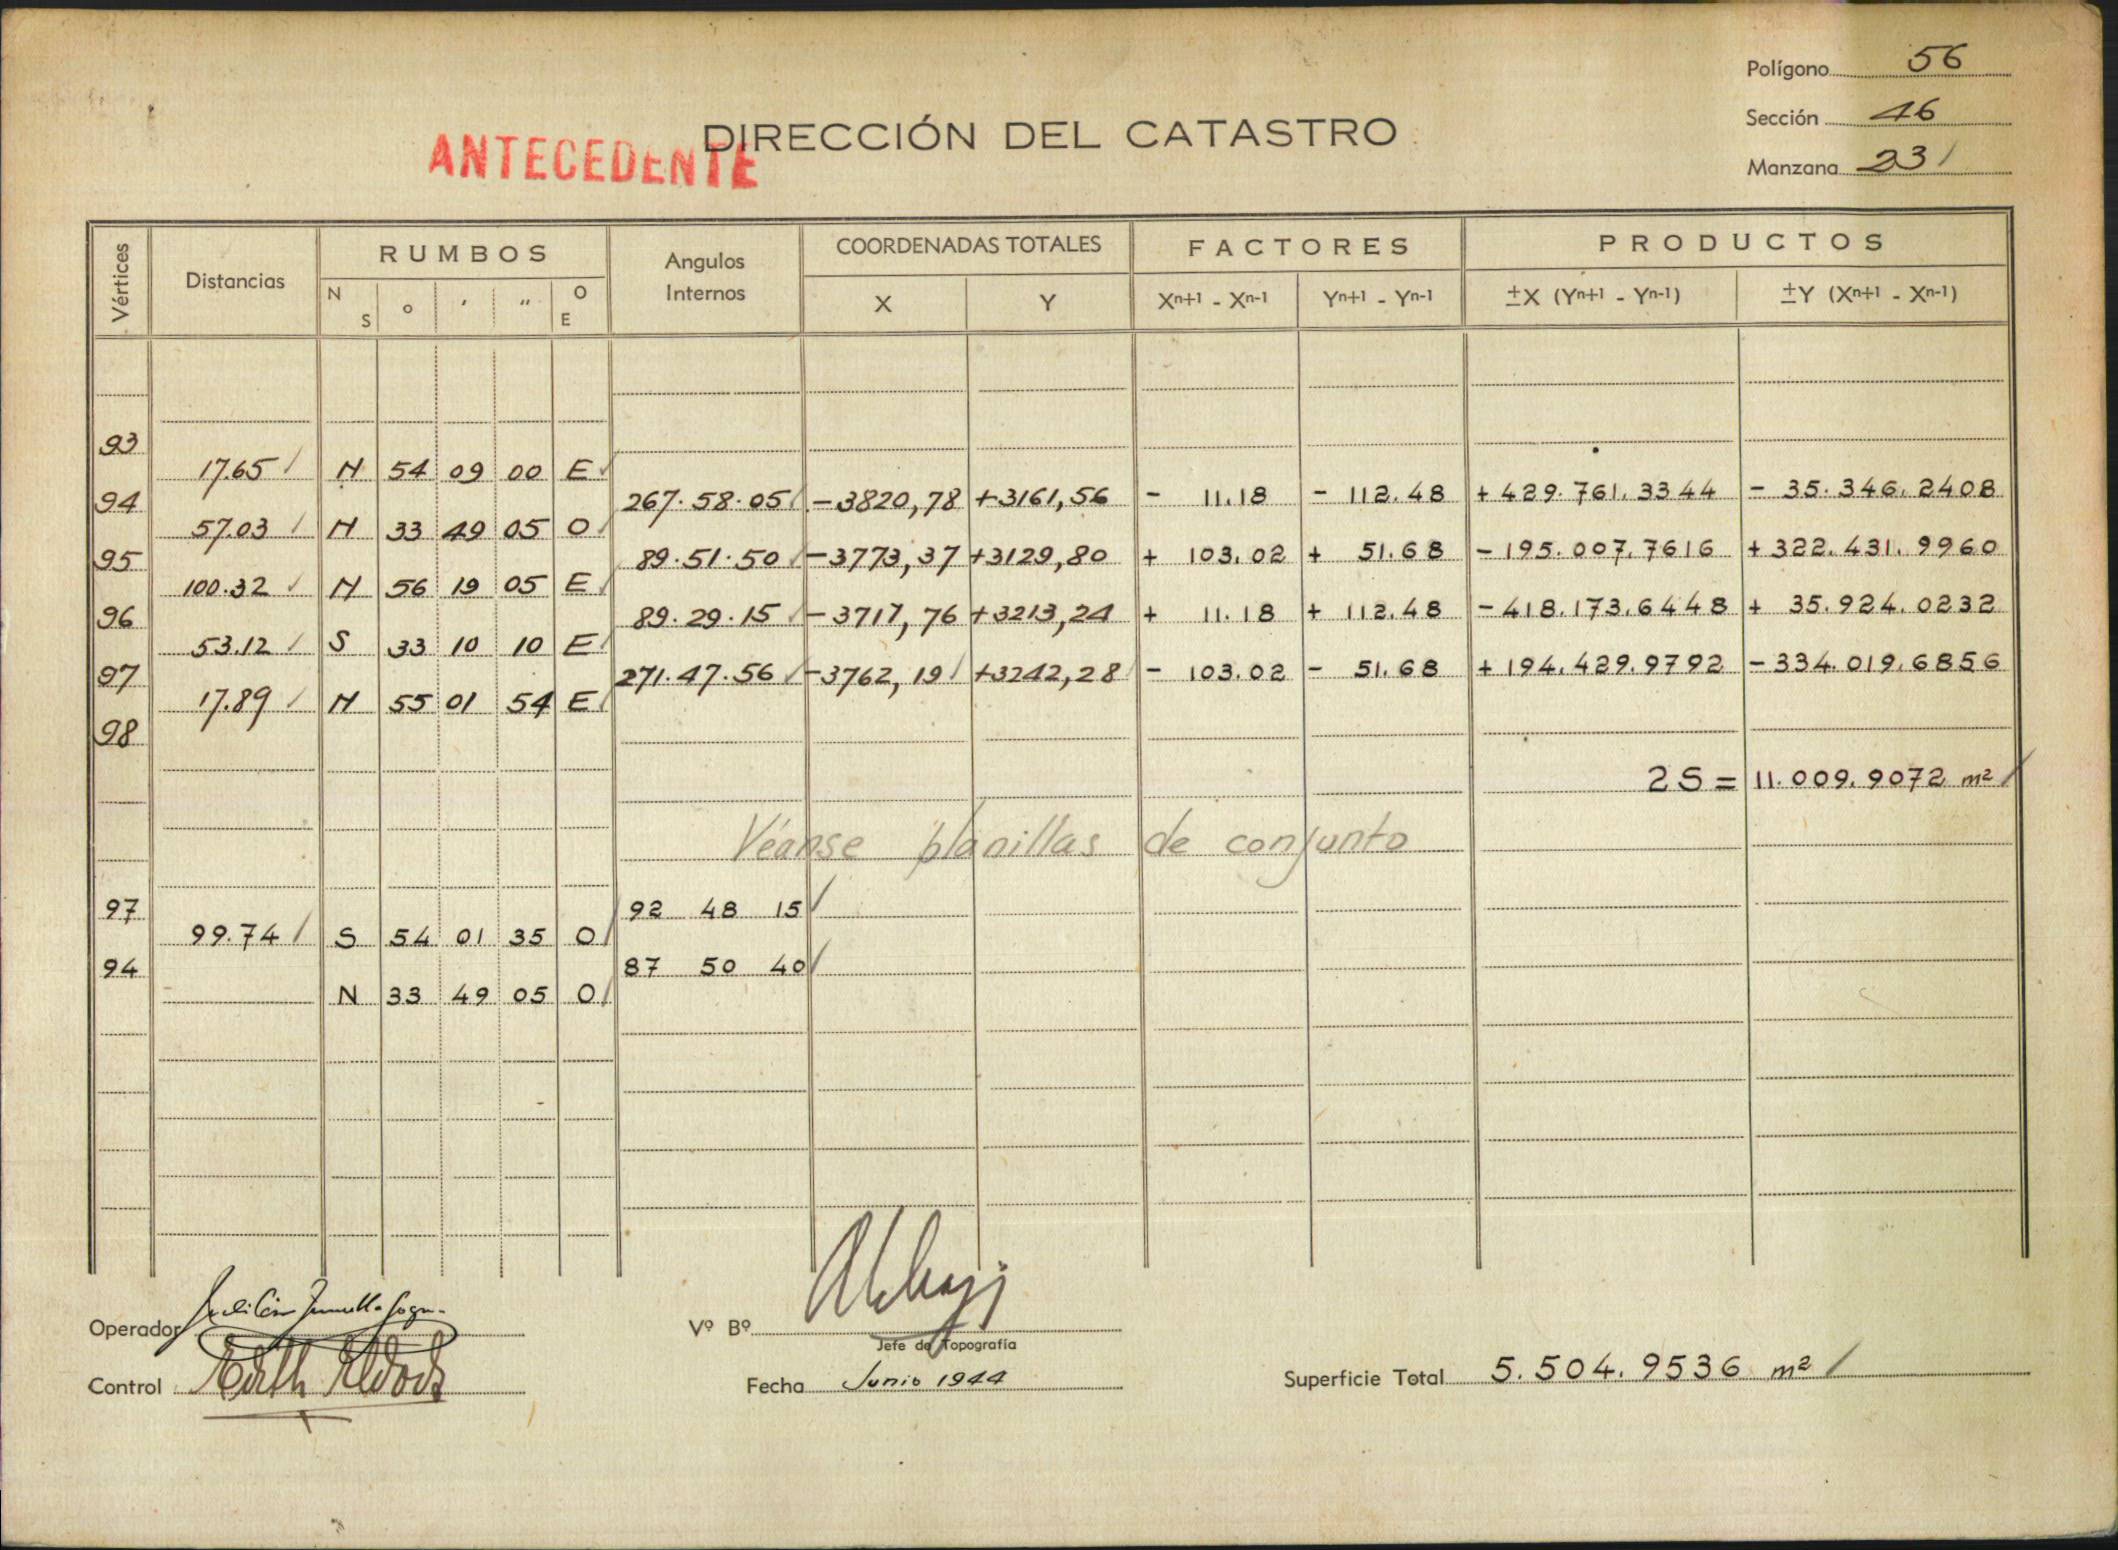 Polígono 56
Sección 46
Manzana 231
DIRECCIÓN DEL CATASTRO
ANTECEDENTE
Vértices Distancias RUMBOS Angulos Internos COORDENADAS TOTALES FACTORES PRODUCTOS
N S o ′ ″ O E X Y Xn+1 - Xn-1 Yn+1 - Yn-1 ±X (Yn+1 - Yn-1) ±Y (Xn+1 - Xn-1)
93
17.65 N 54 09 00 E
94 267.58.05 -3820,78 +3161,56 - 11.18 - 112.48 + 429.761.3344 - 35.346.2408
57.03 N 33 49 05 O
95 89.51.50 -3773,37 +3129,80 + 103.02 + 51.68 - 195.007.7616 + 322.431.9960
100.32 N 56 19 05 E
96 89.29.15 -3717,76 +3213,24 + 11.18 + 112.48 - 418.173.6448 + 35.924.0232
53.12 S 33 10 10 E
97 271.47.56 -3762,19 +3242,28 - 103.02 - 51.68 + 194.429.9792 - 334.019.6856
17.89 N 55 01 54 E
98
2S = 11.009.9072 m²
Véanse planillas de conjunto
97 92 48 15
99.74 S 54 01 35 O
94 87 50 40
N 33 49 05 O
Operador
Vº Bº
Jefe de Topografía
Control
Fecha Junio 1944
Superficie Total 5.504.9536 m²